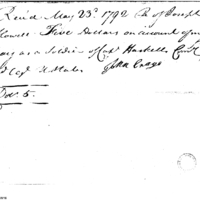 Rec'd May 23d. 1792 of Joseph
Howell Five Dollars on account of my
pay as a Soldier of Capt Haskells Comp'y
John
5.